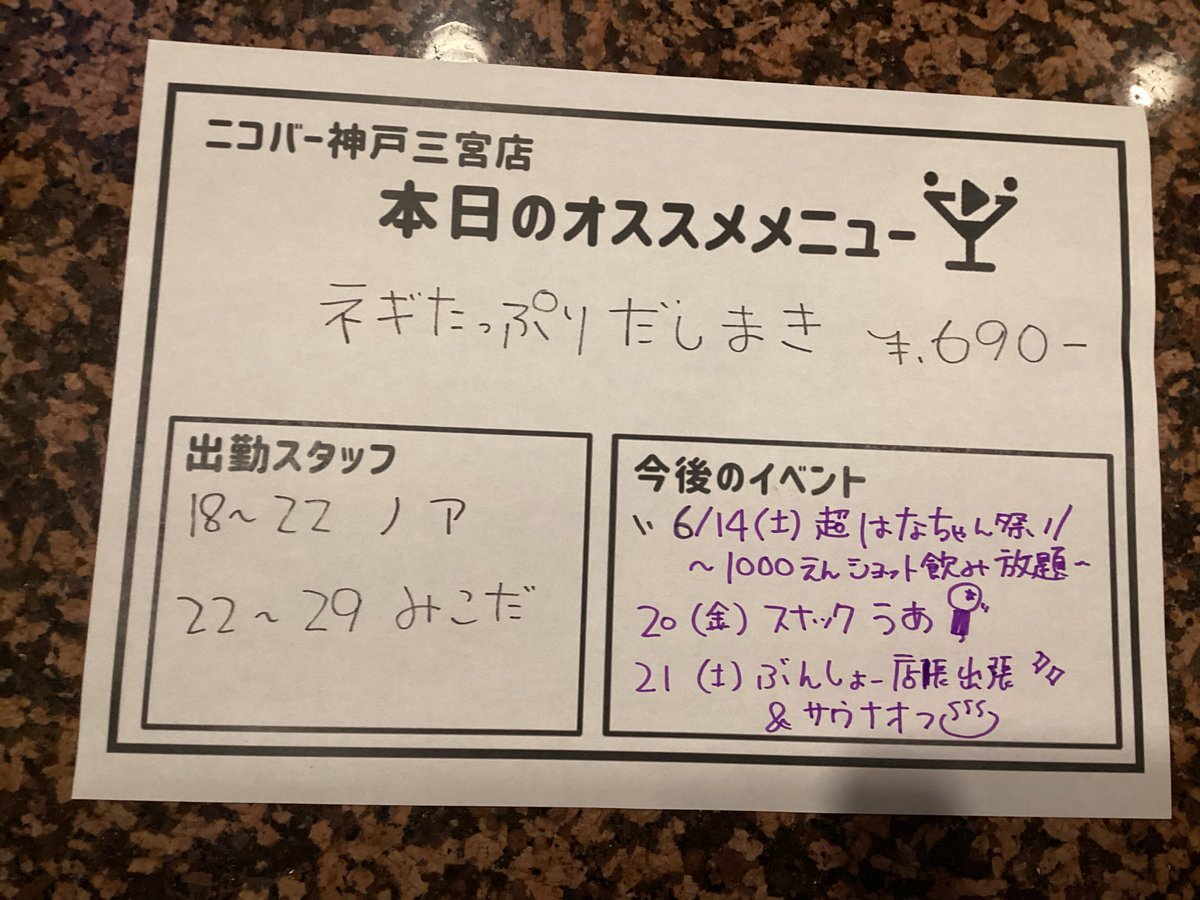 ニコバー神戸三宮店
本日のオススメメニュー
ネギたっぷりだしまき ¥.690-
出勤スタッフ
18~22 ノア
22~29 みこだ
今後のイベント
\\ 6/14(土) 超はなちゃん祭 //
~1000えんショット飲み放題~
20(金) スナックうあ
21(土) ぶんしょー店長出張
& サウナオフ